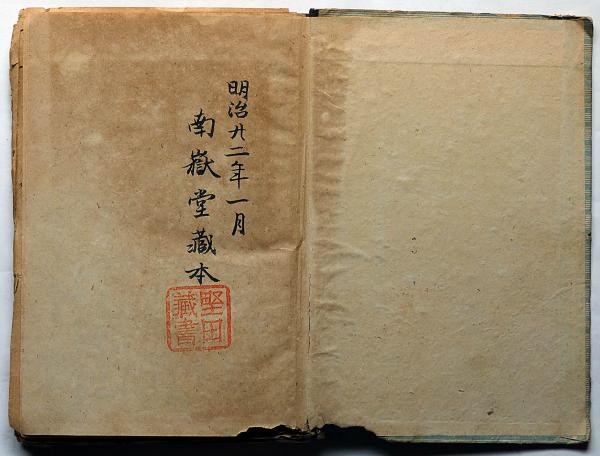 明治廿二年一月
南嶽堂藏本
堅田
藏書